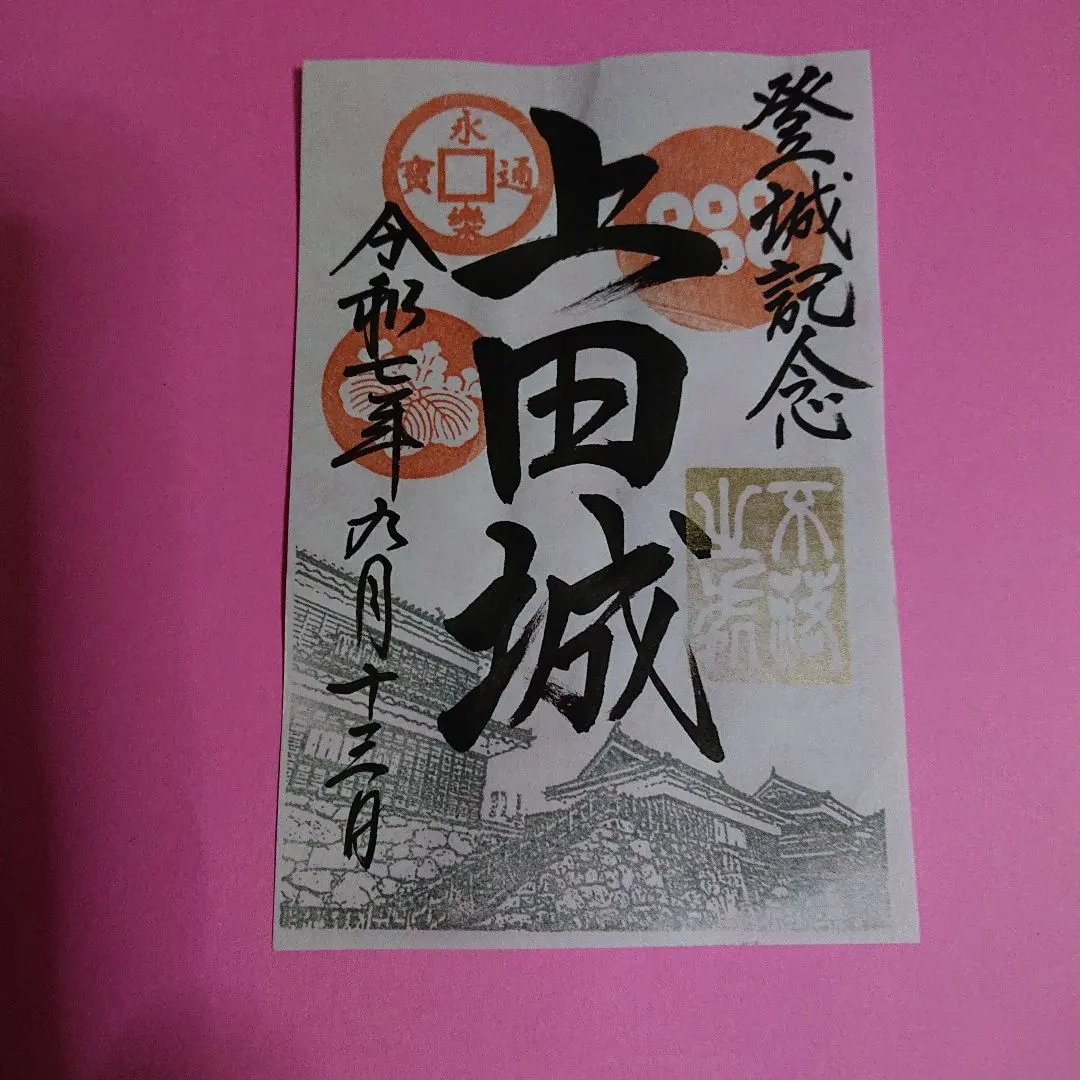 登城記念
上田城
令和七年九月十三日
永樂通寳
不落
之城